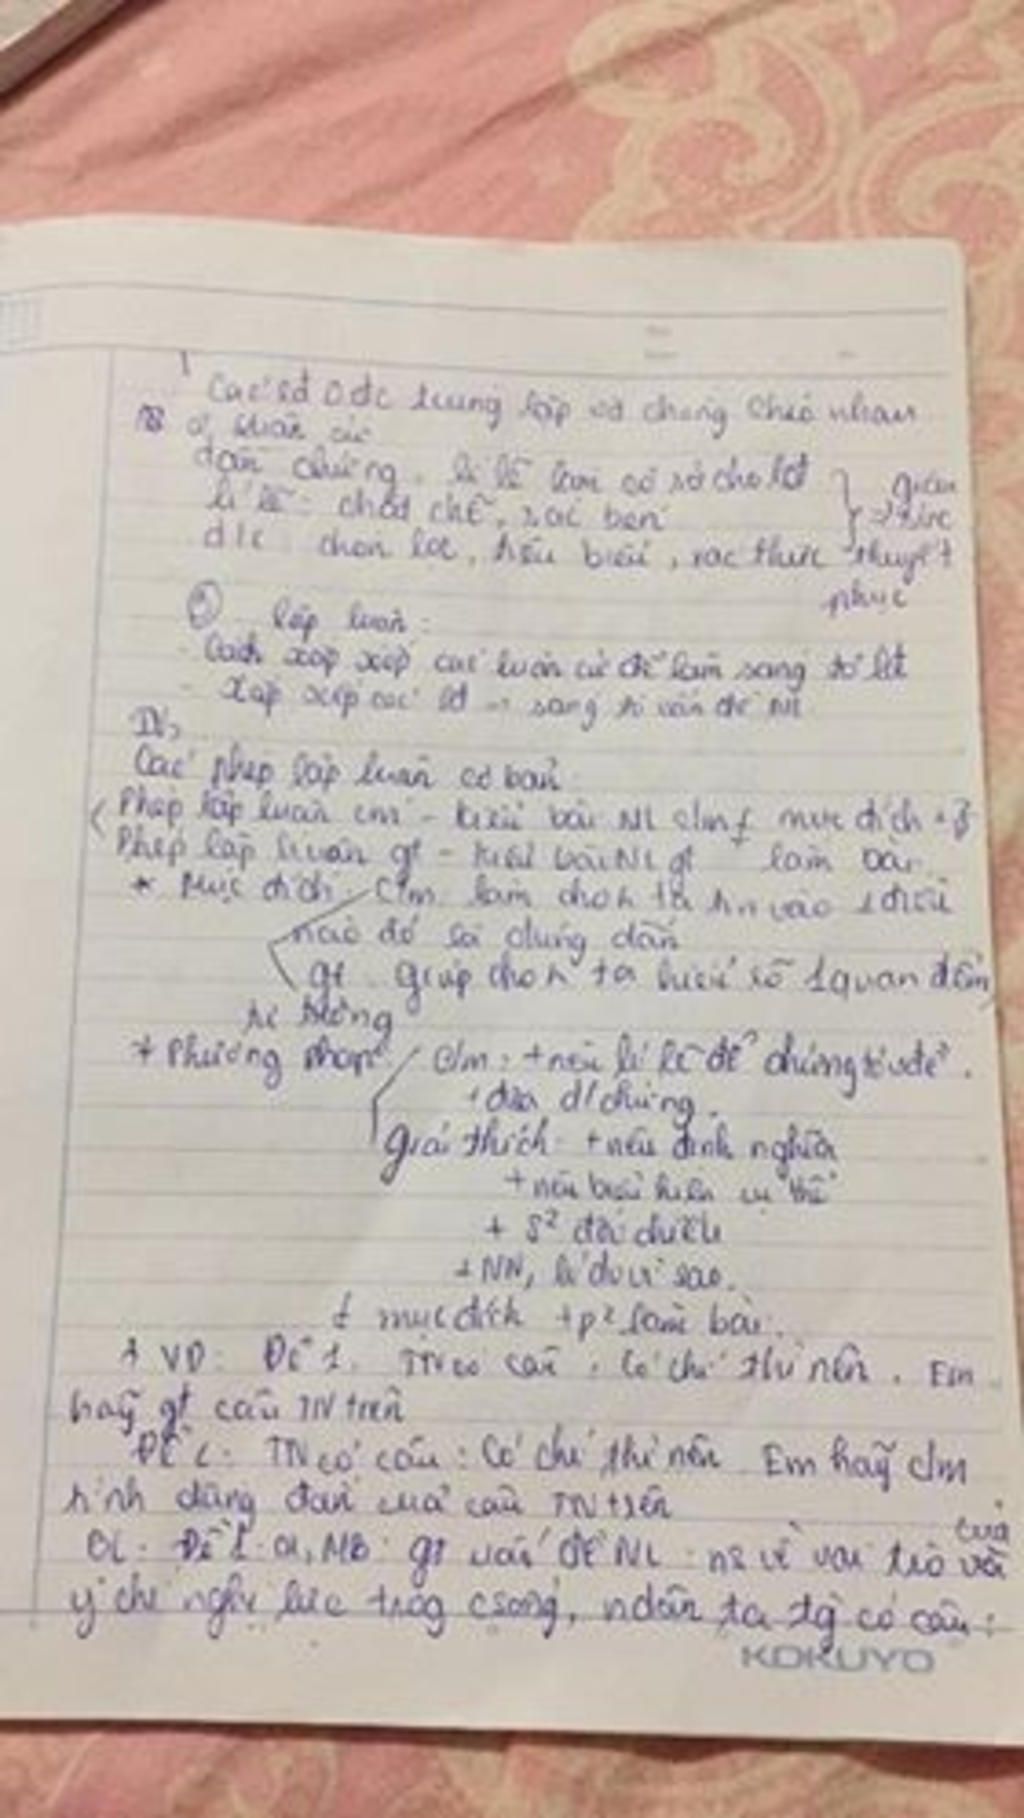 Các lđ 0 đc trùng lặp và chồng chéo nhau
luận cứ
dẫn chứng, lí lẽ làm cơ sở cho lđ
lí lẽ: chặt chẽ, sắc bén
d/c chọn lọc, tiêu biểu, xác thực thuyết
phục
lập luận:
- Cách xắp xếp các luận cứ để làm sáng tỏ lđ
- Xắp xếp các lđ → sáng tỏ vấn đề NL
Các phép lập luận cơ bản
Phép lập luận cm - kiểu bài NL c/m ≠ mục đích +
Phép lập luận gt - kiểu bài NL gt làm bài
* Mục đích: C/m làm cho ta vào 1 điều
nào đó là đúng đắn
gt giúp cho ta hiểu rõ 1 quan điểm,
tư tưởng
* Phương pháp: C/m: + nêu lí lẽ để chứng tỏ vđề.
+ đưa d/chứng.
Giải thích: + nêu định nghĩa
+ nêu biểu hiện cụ thể
+ S² đối chiếu
+ NN, lí do vì sao.
≠ mục đích + p² làm bài.
* VD: Đề 1. TN có câu: Có chí thì nên. Em
hãy gt câu TN trên
Đề 2: TN có câu: Có chí thì nên. Em hãy c/m
tính đúng đắn của câu TN trên
BL: Đề 1: a, MB: gt vấn đề NL: ns về vai trò của
ý chí nghị lực trog csống, ndân ta tg có câu:
KOKUYO